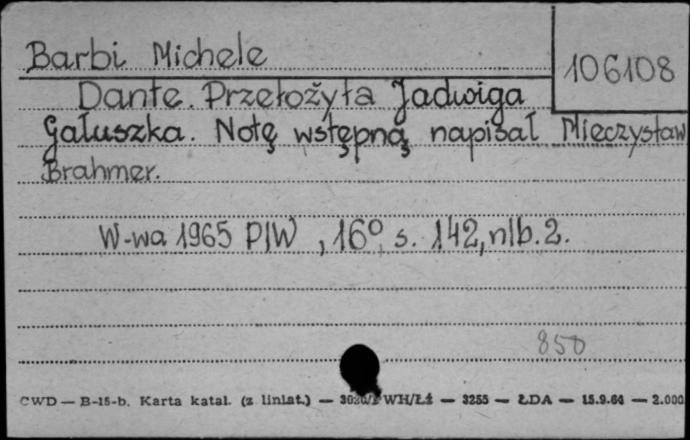 Barbi Michele
106108
Dante. Przełożyła Jadwiga
Gałuszka. Notę wstępną napisał Mieczysław
Brahmer.
W-wa 1965 PIW, 16°, s. 142, nlb. 2.
850
CWD — B-15-b. Karta katal. (z liniat.) — WH/Łź — 3255 — ŁDA — 15.9.64 — 2.000